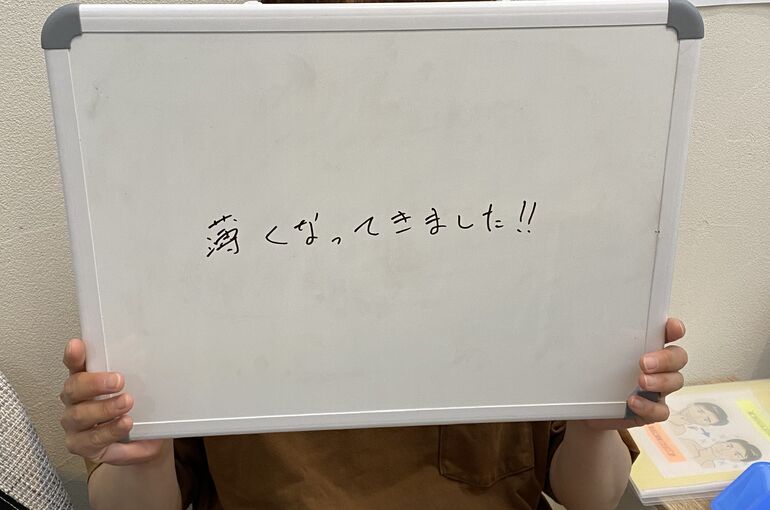 薄くなってきました!!